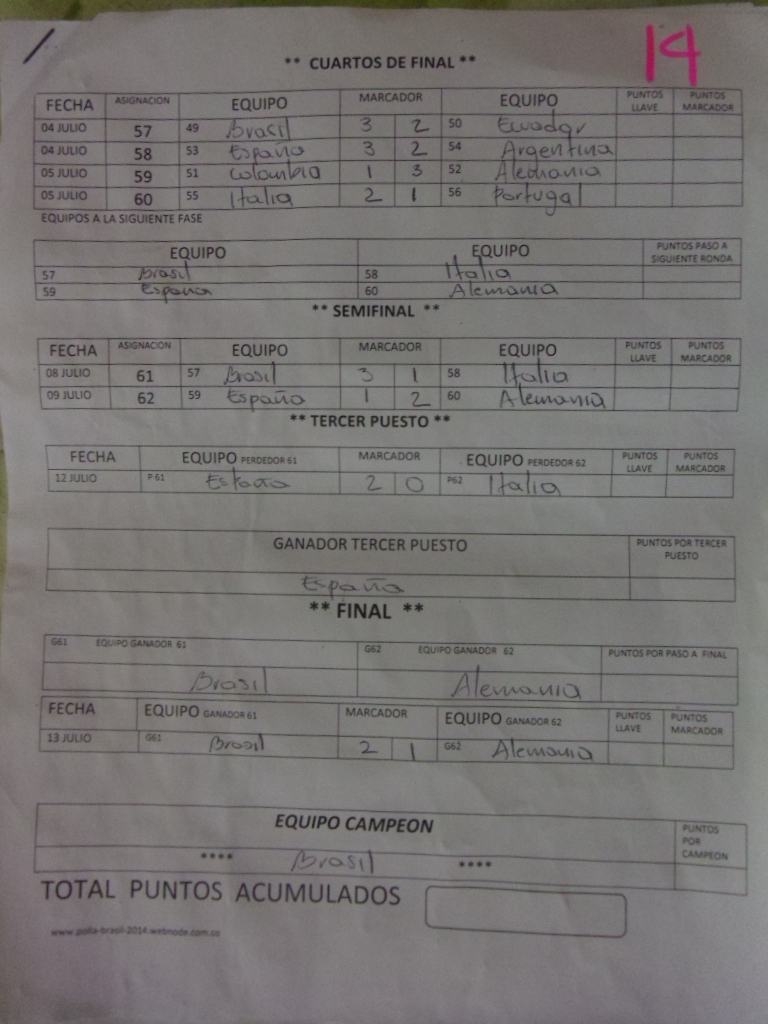 14
** CUARTOS DE FINAL **
FECHA ASIGNACION EQUIPO MARCADOR EQUIPO PUNTOS LLAVE PUNTOS MARCADOR
04 JULIO 57 49 Brasil 3 2 50 Ecuador
04 JULIO 58 53 España 3 2 54 Argentina
05 JULIO 59 51 Colombia 1 3 52 Alemania
05 JULIO 60 55 Italia 2 1 56 Portugal
EQUIPOS A LA SIGUIENTE FASE
EQUIPO EQUIPO PUNTOS PASO A SIGUIENTE RONDA
57 Brasil 58 Italia
59 España 60 Alemania
** SEMIFINAL **
FECHA ASIGNACION EQUIPO MARCADOR EQUIPO PUNTOS LLAVE PUNTOS MARCADOR
08 JULIO 61 57 Brasil 3 1 58 Italia
09 JULIO 62 59 España 1 2 60 Alemania
** TERCER PUESTO **
FECHA EQUIPO PERDEDOR 61 MARCADOR EQUIPO PERDEDOR 62 PUNTOS LLAVE PUNTOS MARCADOR
12 JULIO P 61 España 2 0 P62 Italia
GANADOR TERCER PUESTO PUNTOS POR TERCER PUESTO
España
** FINAL **
G61 EQUIPO GANADOR 61 G62 EQUIPO GANADOR 62 PUNTOS POR PASO A FINAL
Brasil Alemania
FECHA EQUIPO GANADOR 61 MARCADOR EQUIPO GANADOR 62 PUNTOS LLAVE PUNTOS MARCADOR
13 JULIO G61 Brasil 2 1 G62 Alemania
EQUIPO CAMPEON PUNTOS POR CAMPEON
**** Brasil ****
TOTAL PUNTOS ACUMULADOS
www.polla-brasil-2014.webnode.com.co